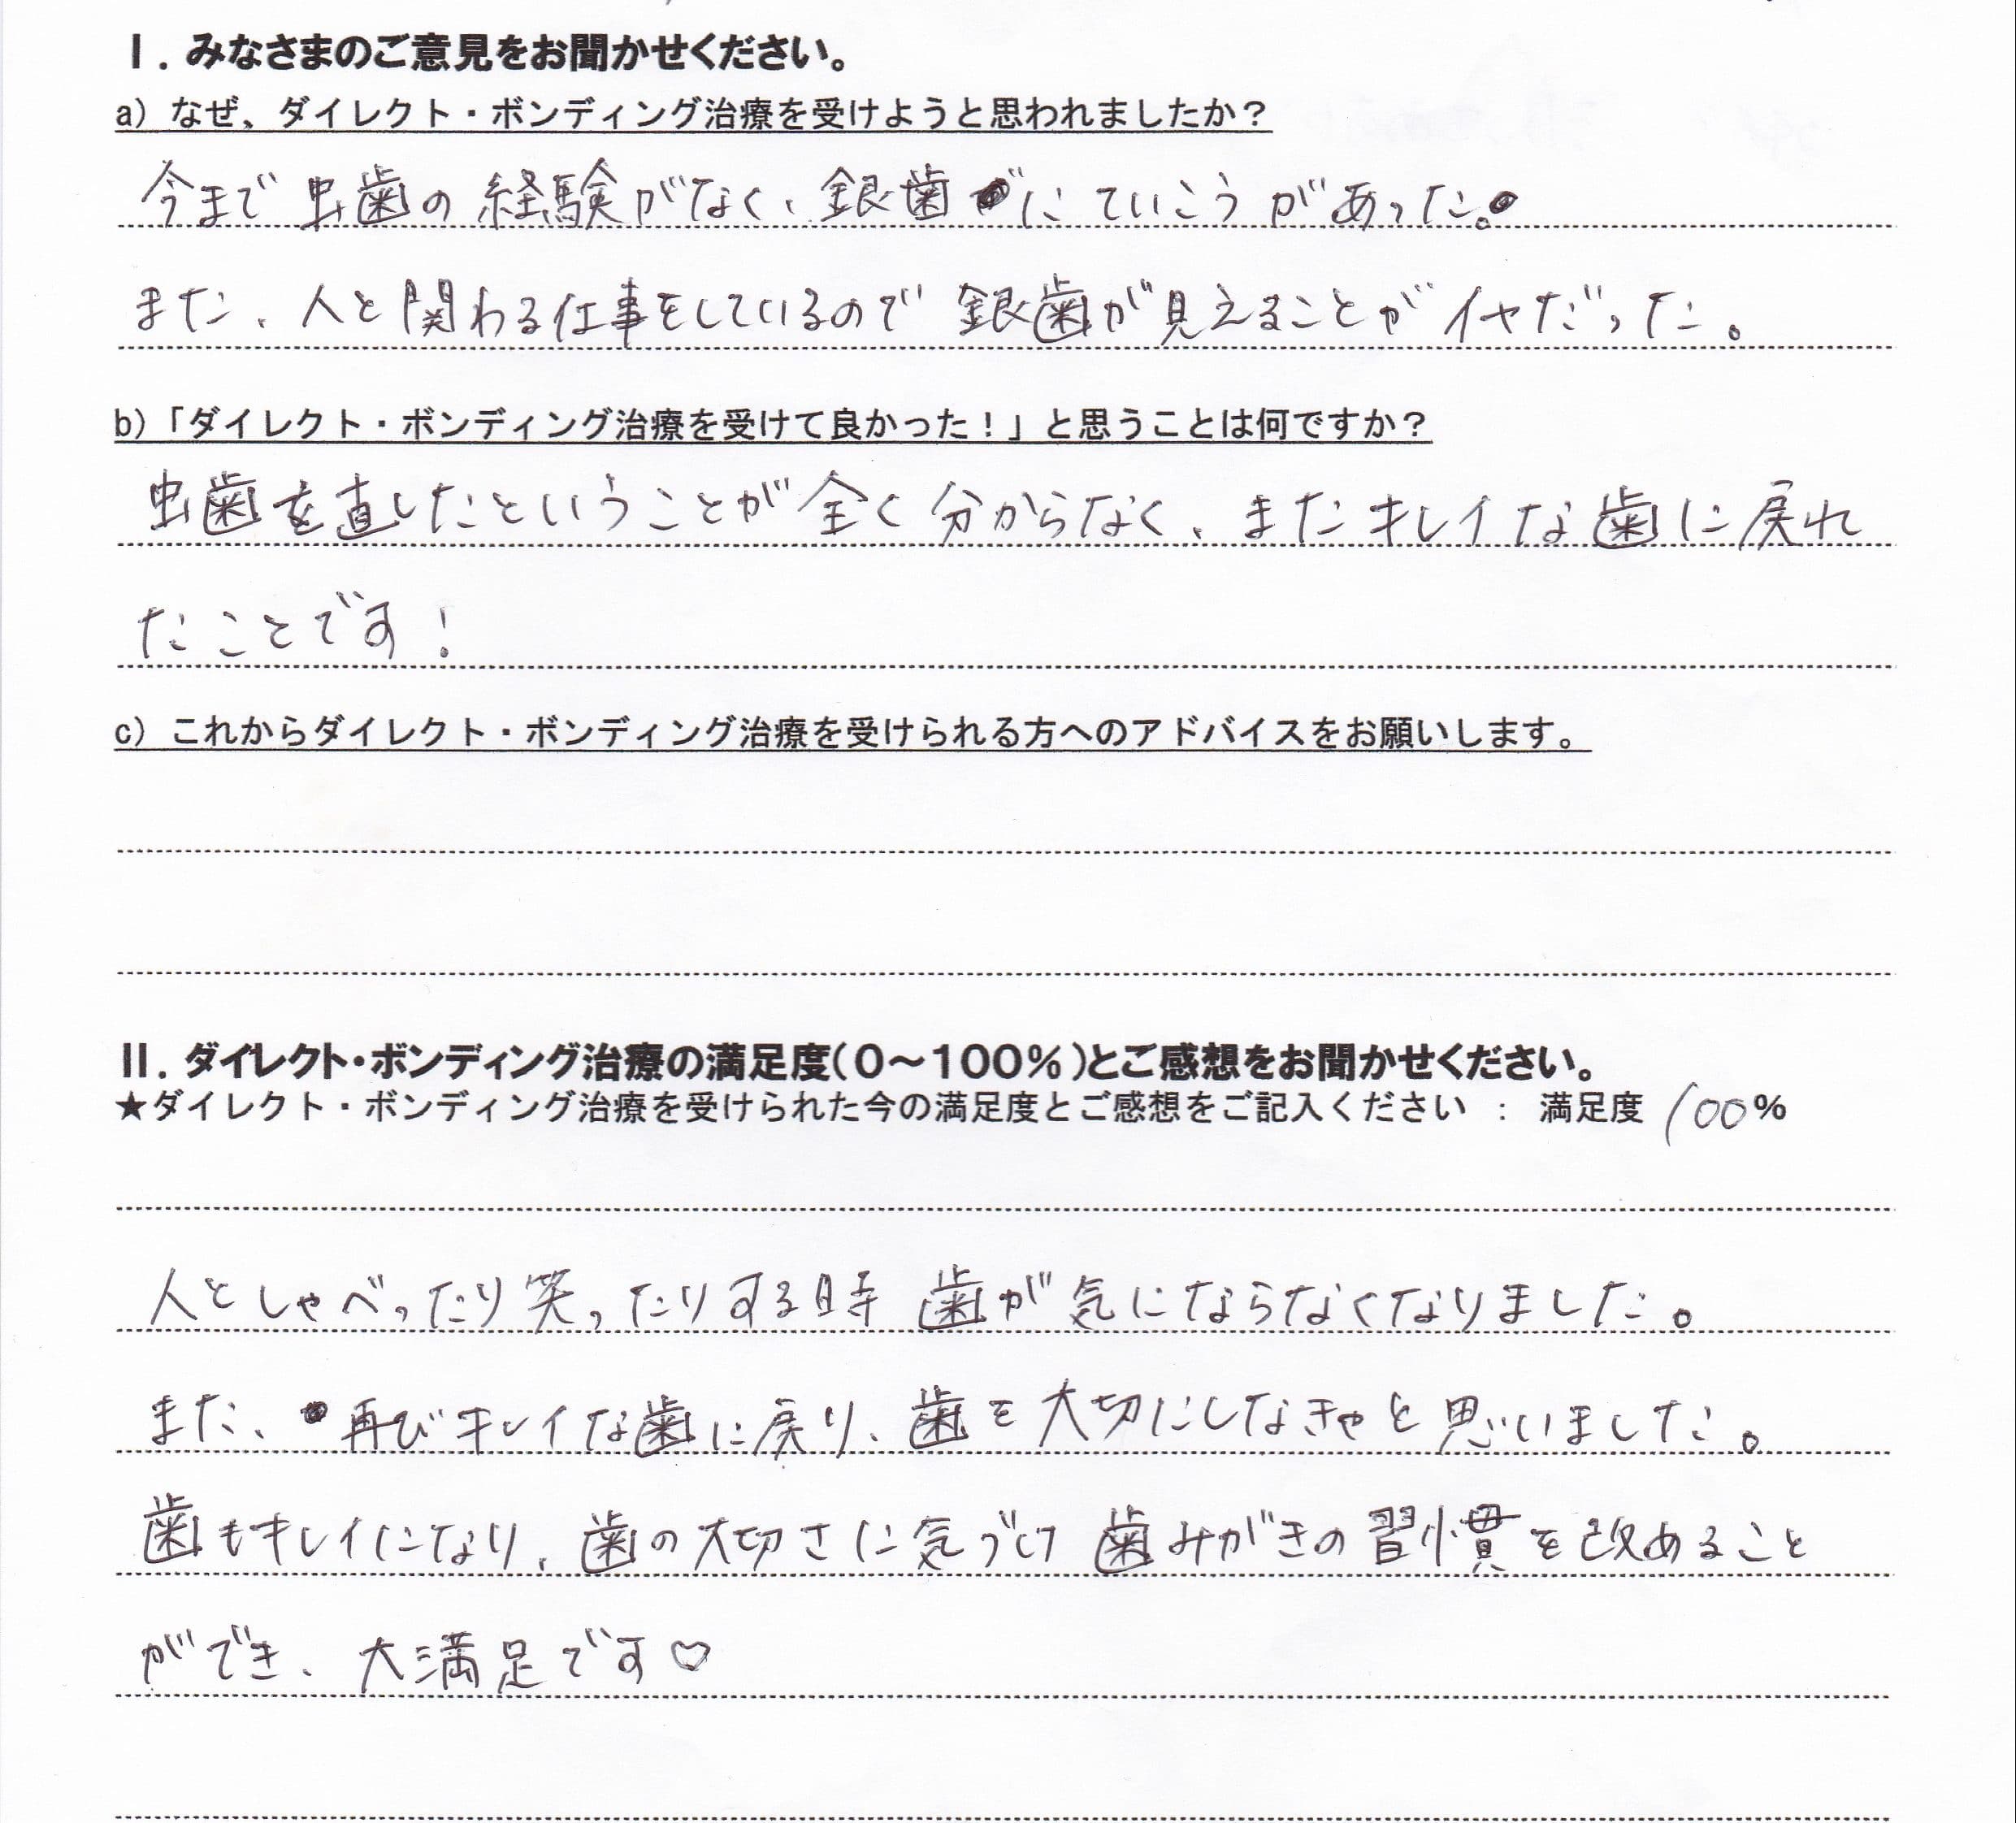 Ⅰ．みなさまのご意見をお聞かせください。
a) なぜ、ダイレクト・ボンディング治療を受けようと思われましたか？
今まで虫歯の経験がなく、銀歯にていこうがあった。
また、人と関わる仕事をしているので銀歯が見えることがイヤだった。
b)「ダイレクト・ボンディング治療を受けて良かった！」と思うことは何ですか？
虫歯を直したということが全く分からなく、またキレイな歯に戻れ
たことです！
c) これからダイレクト・ボンディング治療を受けられる方へのアドバイスをお願いします。
Ⅱ．ダイレクト・ボンディング治療の満足度（０～１００％）とご感想をお聞かせください。
★ダイレクト・ボンディング治療を受けられた今の満足度とご感想をご記入ください ： 満足度 100％
人としゃべったり笑ったりする時 歯が気にならなくなりました。
また、再びキレイな歯に戻り、歯を大切にしなきゃと思いました。
歯もキレイになり、歯の大切さに気づけ 歯みがきの習慣を改めること
ができ、大満足です♡